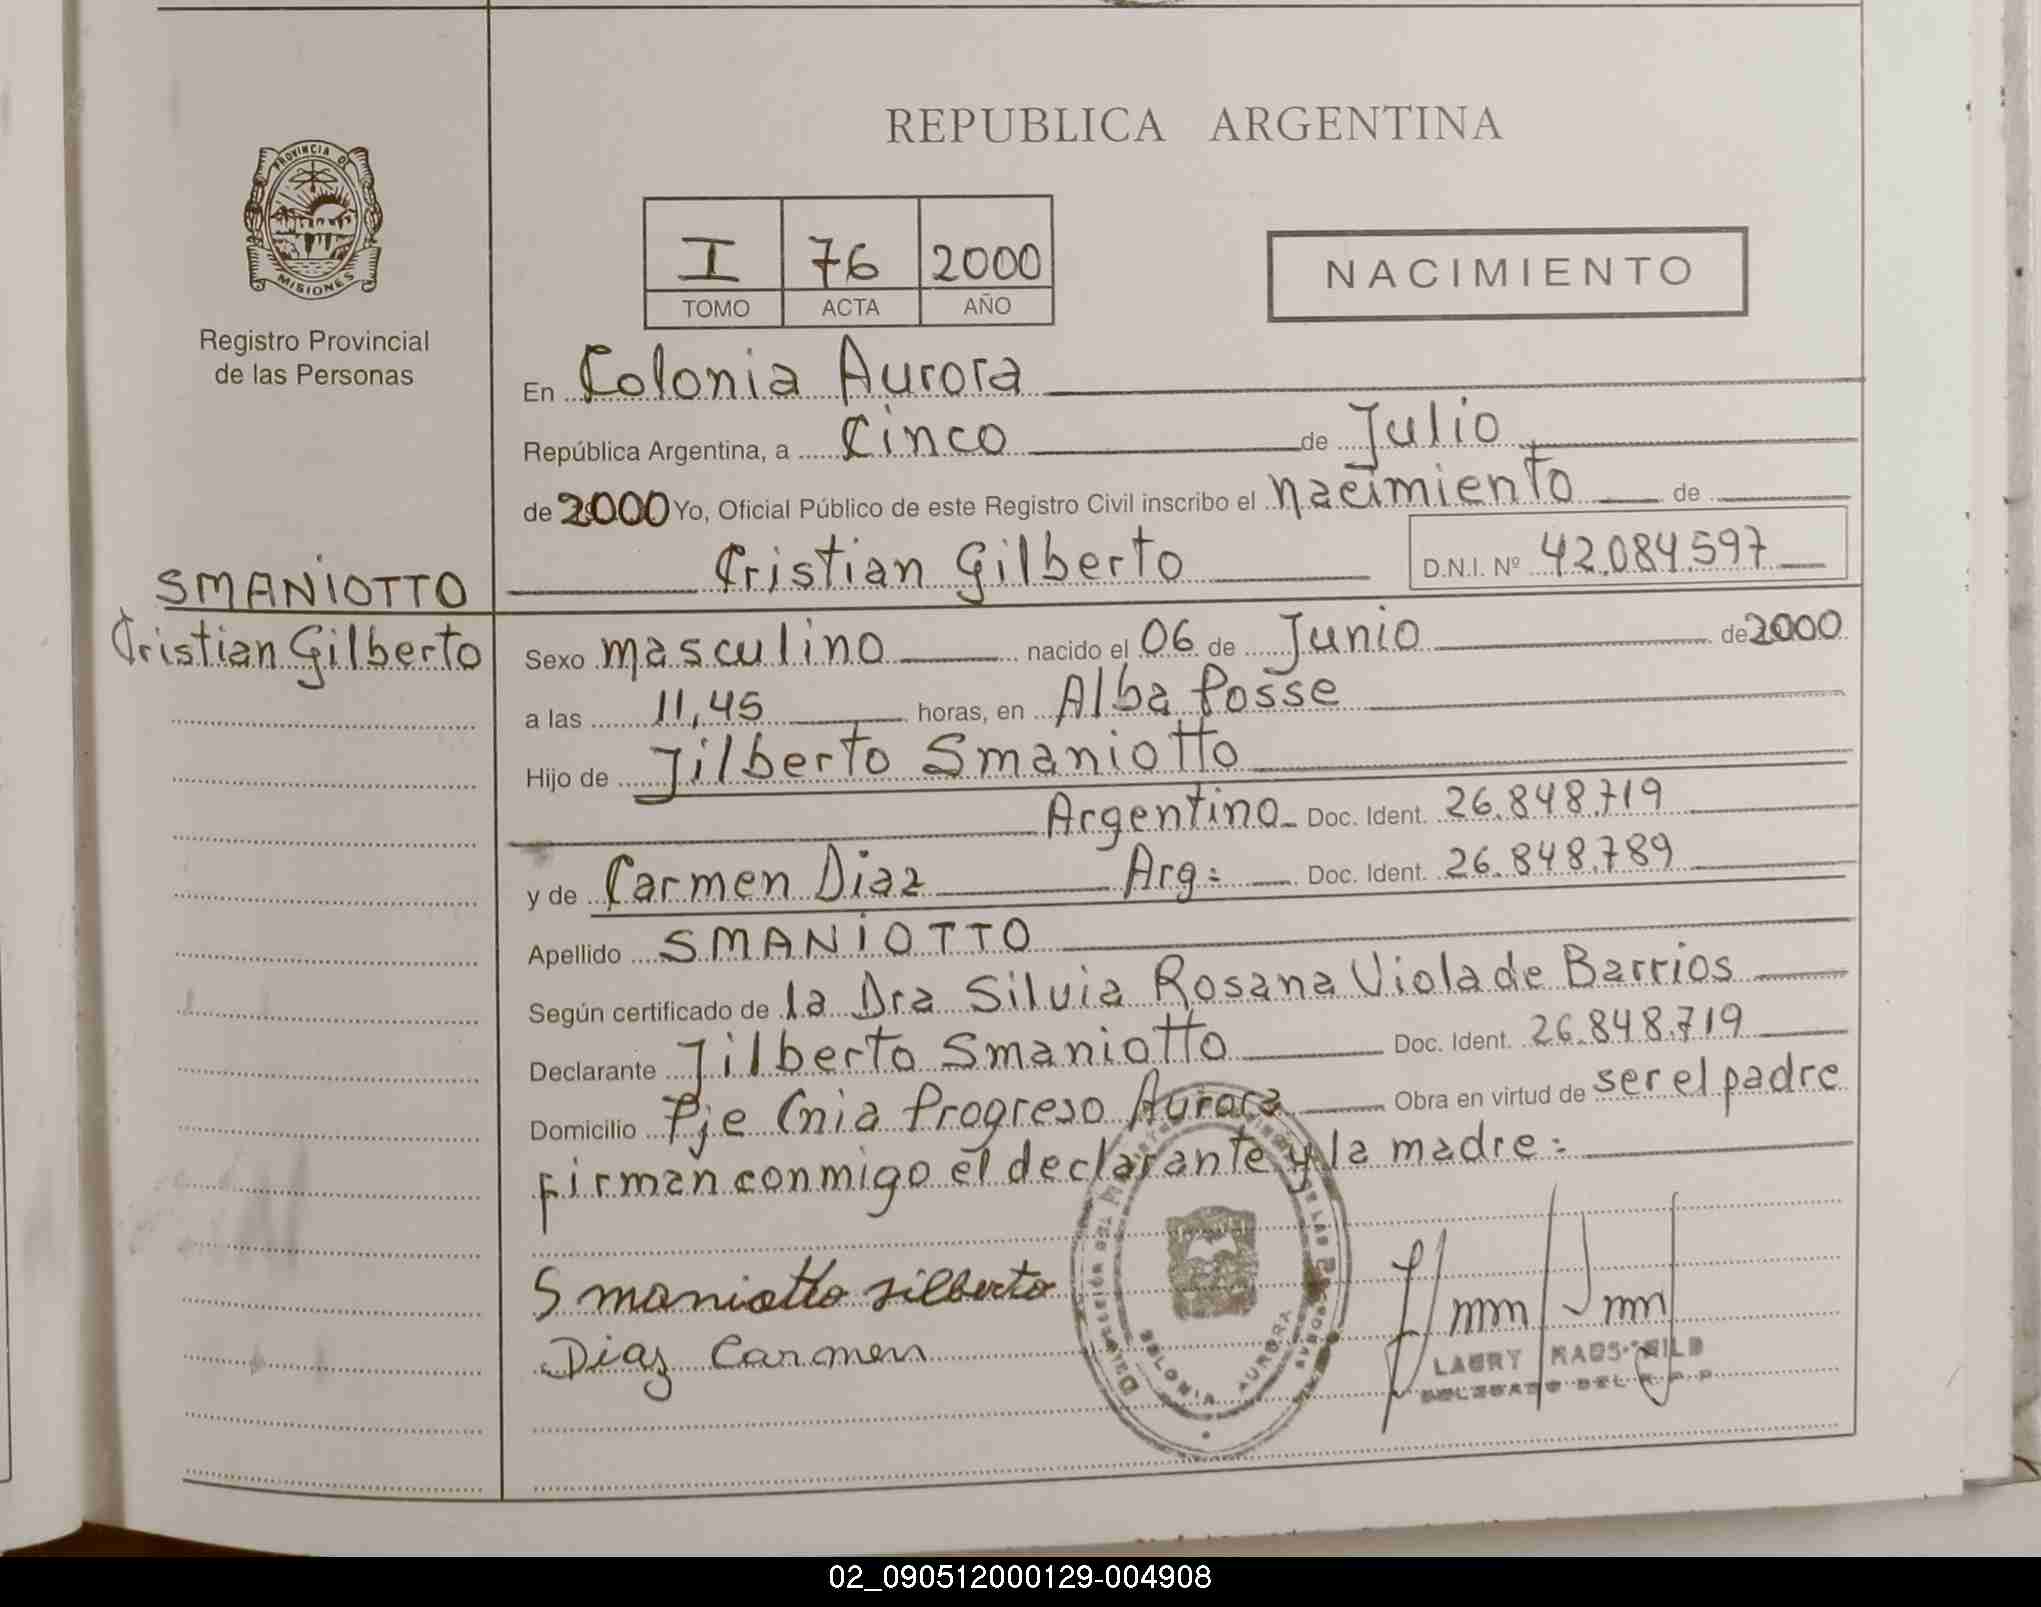 PROVINCIA DE
MISIONES
Registro Provincial
de las Personas
SMANIOTTO
Cristian Gilberto
REPUBLICA ARGENTINA
I 76 2000
TOMO ACTA AÑO
NACIMIENTO
En Colonia Aurora
República Argentina, a Cinco de Julio
de 2000 Yo, Oficial Público de este Registro Civil inscribo el nacimiento de
Cristian Gilberto D.N.I. Nº 42.084.597
Sexo masculino nacido el 06 de Junio de 2000
a las 11,45 horas, en Alba Posse
Hijo de Jilberto Smaniotto
Argentino Doc. Ident. 26.848.719
y de Carmen Diaz Arg. Doc. Ident. 26.848.789
Apellido SMANIOTTO
Según certificado de la Dra Silvia Rosana Viola de Barrios
Declarante Jilberto Smaniotto Doc. Ident. 26.848.719
Domicilio Pje Cnia Progreso Aurora Obra en virtud de ser el padre
firman conmigo el declarante y la madre:
Smaniotto Jilberto
Diaz Carmen
COLONIA AURORA
LAURY
DELEGADO DEL R.P.P.
02_090512000129-004908